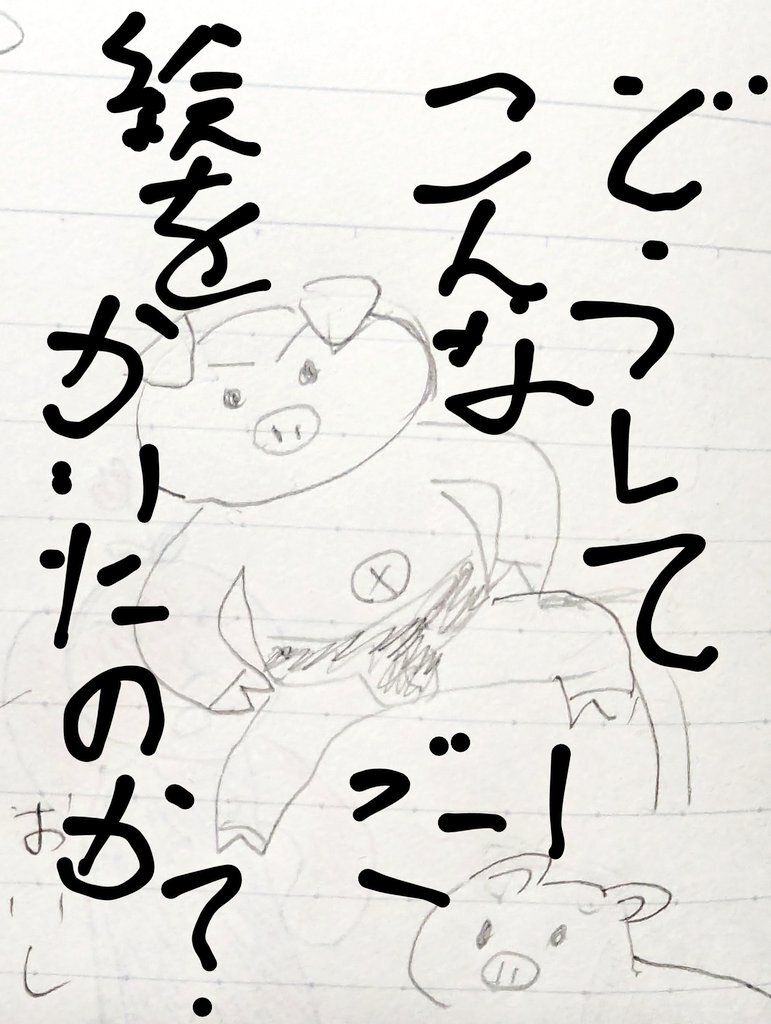 どうして
こんな
絵を
かいたのか?
おいし